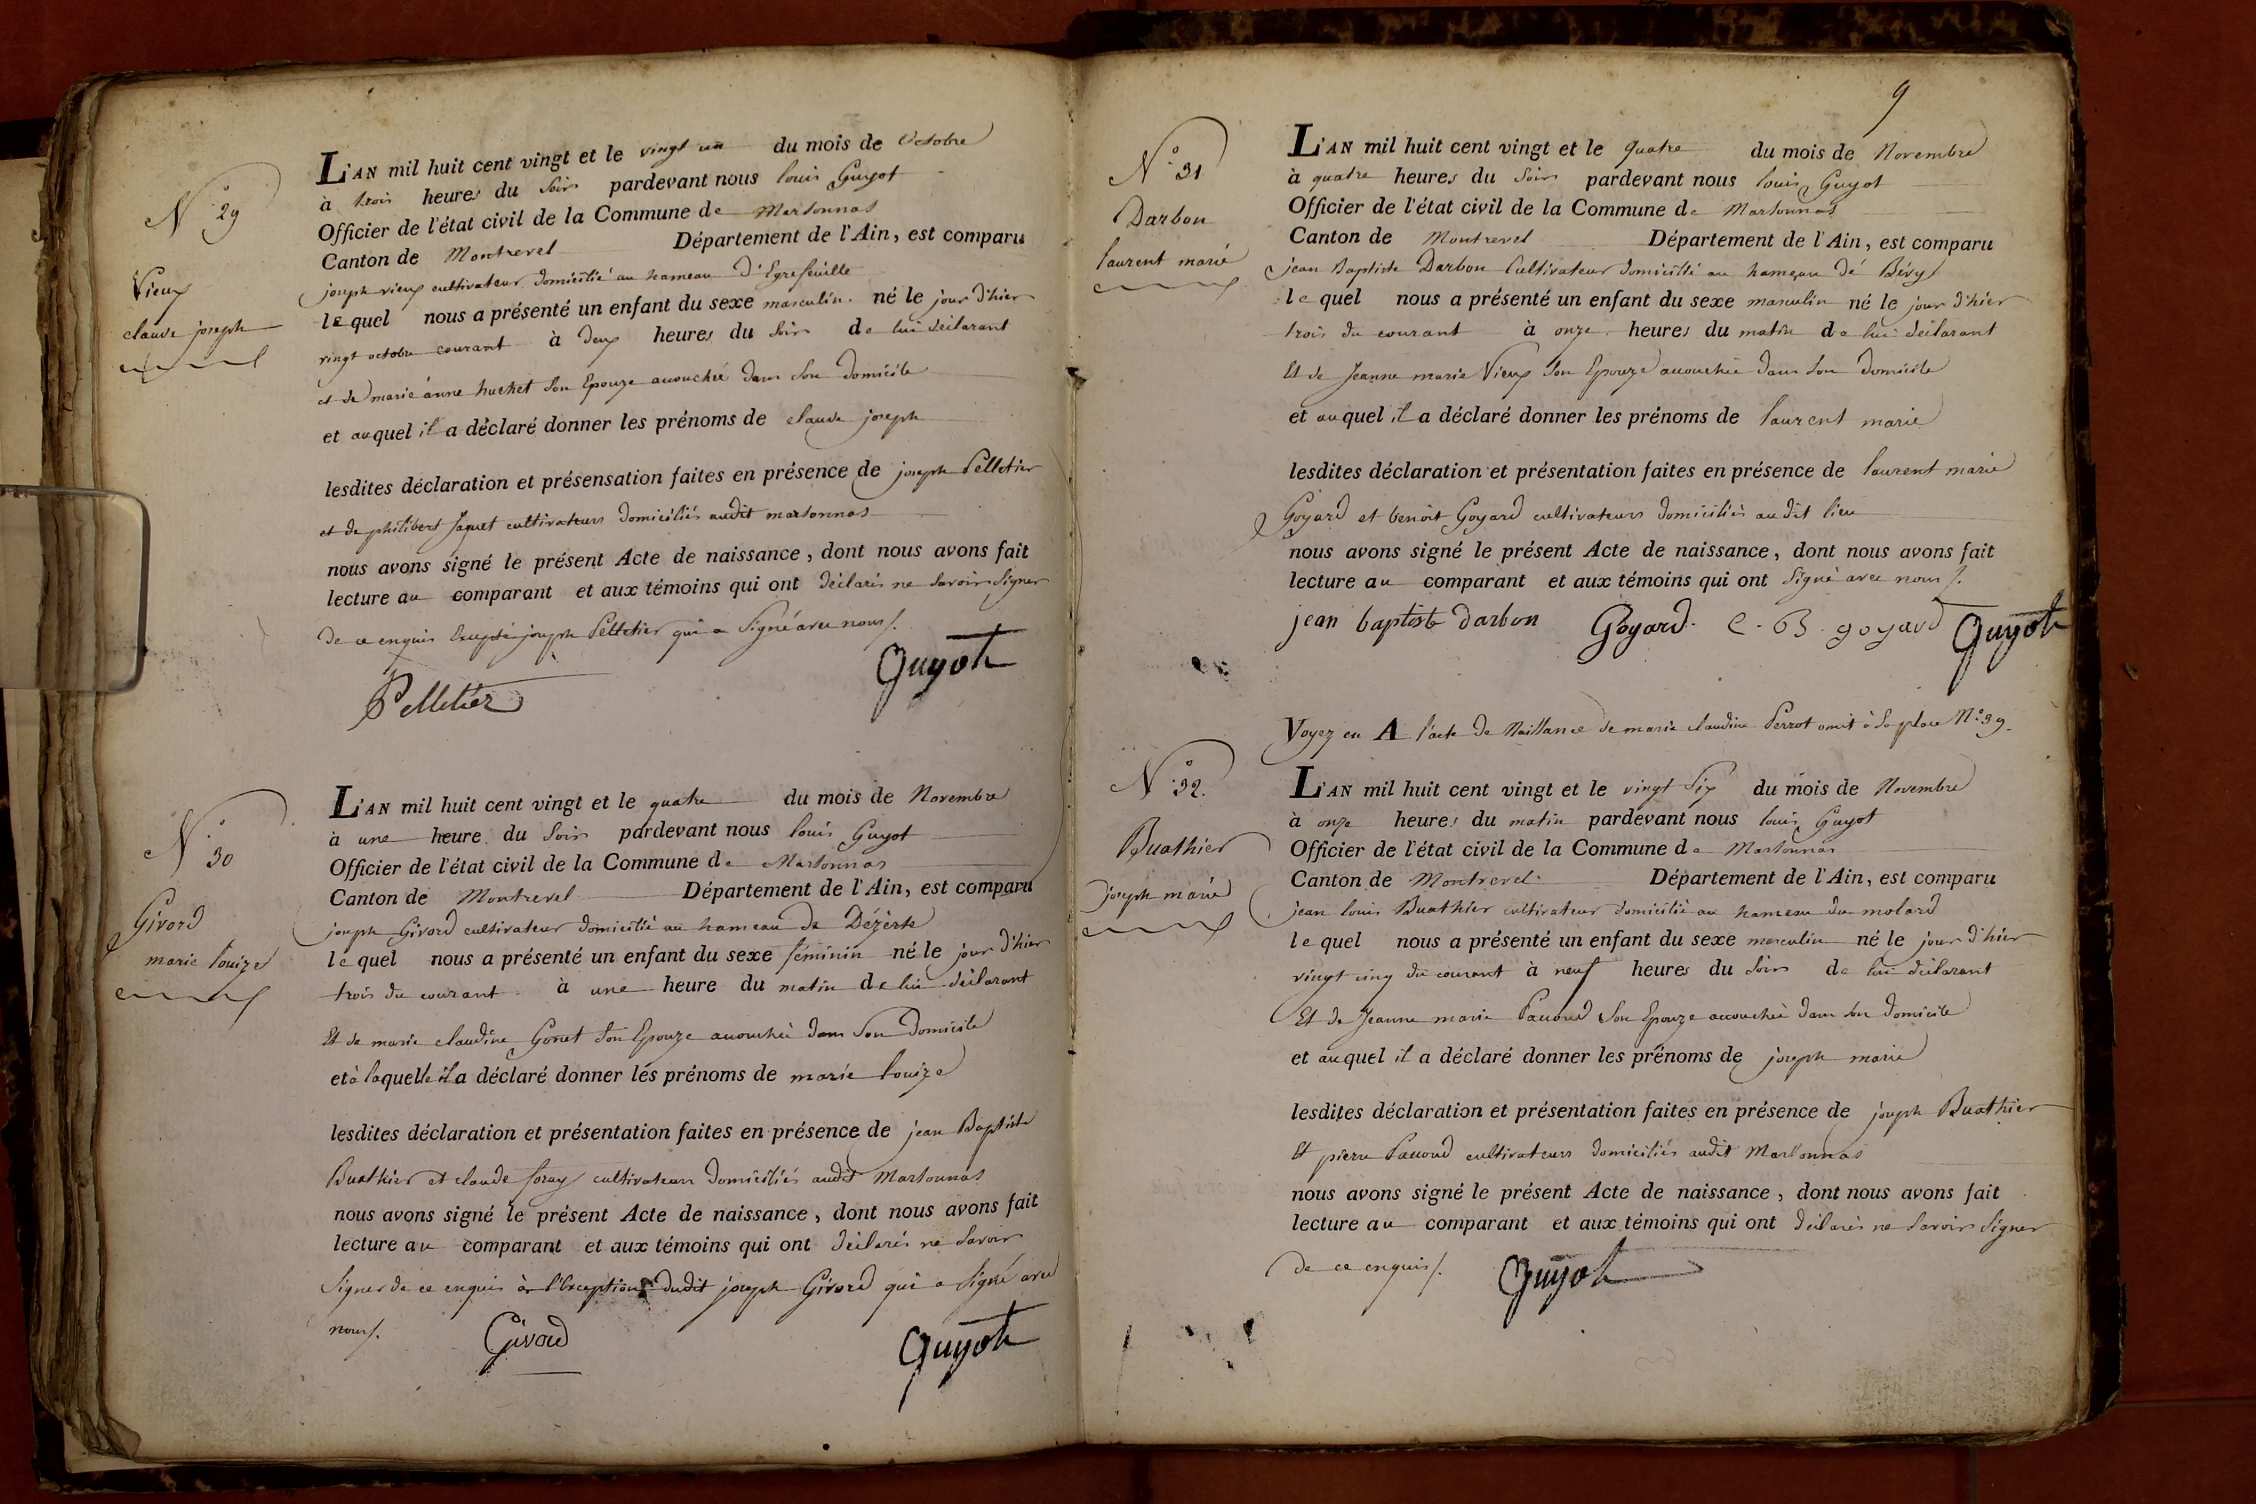 N° 29
Vieux
claude joseph
L'AN mil huit cent vingt et le vingt un du mois de Octobre
à trois heures du Soir pardevant nous louis Guyot
Officier de l'état civil de la Commune de Marsonnas
Canton de Montrevel Département de l'Ain, est comparu
joseph vieux cultivateur domicilié au hameau d'Egrefeuille
lequel nous a présenté un enfant du sexe masculin né le jour d'hier
vingt octobre courant à deux heures du Soir de lui déclarant
et de marie anne huchet Son Epouze accouchée dans Son domicile
et auquel il a déclaré donner les prénoms de claude joseph
lesdites déclaration et présensation faites en présence de joseph Pelletier
et de philibert Jaquet cultivateurs domiciliés audit marsonnas
nous avons signé le présent Acte de naissance, dont nous avons fait
lecture au comparant et aux témoins qui ont déclarés ne Savoir Signer
de ce enquis Excepté joseph Pelletier qui a Signé avec nous/.
Pelletier Guyot
N° 30
Givord
marie louize
L'AN mil huit cent vingt et le quatre du mois de Novembre
à une heure du Soir pardevant nous louis Guyot
Officier de l'état civil de la Commune de Marsonnas
Canton de Montrevel Département de l'Ain, est comparu
joseph Givord cultivateur domicilié au hameau de Dézerte
lequel nous a présenté un enfant du sexe féminin né le jour d'hier
trois du courant à une heure du matin de lui déclarant
Et de marie claudine Gonet Son Epouze accouchée dans Son domicile
et à laquelle il a déclaré donner les prénoms de marie louize
lesdites déclaration et présentation faites en présence de jean Baptiste
Buathier et claude foray cultivateurs domiciliés audit Marsonnas
nous avons signé le présent Acte de naissance, dont nous avons fait
lecture au comparant et aux témoins qui ont déclarés ne Savoir
Signer de ce enquis à l'Exception dudit joseph Givord qui a Signé avec
nous/. Givord Guyot
9
N° 31
Darbon
laurent marie
L'AN mil huit cent vingt et le quatre du mois de Novembre
à quatre heures du Soir pardevant nous louis Guyot
Officier de l'état civil de la Commune de Marsonnas
Canton de Montrevel Département de l'Ain, est comparu
jean Baptiste Darbon Cultivateur domicilié au hameau de Bévy
lequel nous a présenté un enfant du sexe masculin né le jour d'hier
trois du courant à onze heures du matin de lui déclarant
Et de Jeanne marie Vieux Son Epouze accouchée dans Son domicile
et auquel il a déclaré donner les prénoms de laurent marie
lesdites déclaration et présentation faites en présence de laurent marie
Goyard et benoit Goyard cultivateurs domiciliés audit lieu
nous avons signé le présent Acte de naissance, dont nous avons fait
lecture au comparant et aux témoins qui ont Signé avec nous/.
jean baptiste darbon Goyard. C. B. goyard Guyot
Voyez en A l'acte de Naissance de marie claudine Perrot omit à Sa place N° 39.
N° 32.
Buathier
joseph marie
L'AN mil huit cent vingt et le vingt Six du mois de Novembre
à onze heures du matin pardevant nous louis Guyot
Officier de l'état civil de la Commune de Marsonnas
Canton de Montrevel Département de l'Ain, est comparu
jean louis Buathier cultivateur domicilié au hameau du molard
lequel nous a présenté un enfant du sexe masculin né le jour d'hier
vingt cinq du courant à neuf heures du Soir de lui déclarant
Et de Jeanne marie Pacoud Son Epouze accouchée dans Son domicile
et auquel il a déclaré donner les prénoms de joseph marie
lesdites déclaration et présentation faites en présence de joseph Buathier
Et pierre Pacoud cultivateurs domiciliés audit Marsonnas
nous avons signé le présent Acte de naissance, dont nous avons fait
lecture au comparant et aux témoins qui ont déclarés ne Savoir Signer
de ce enquis/. Guyot